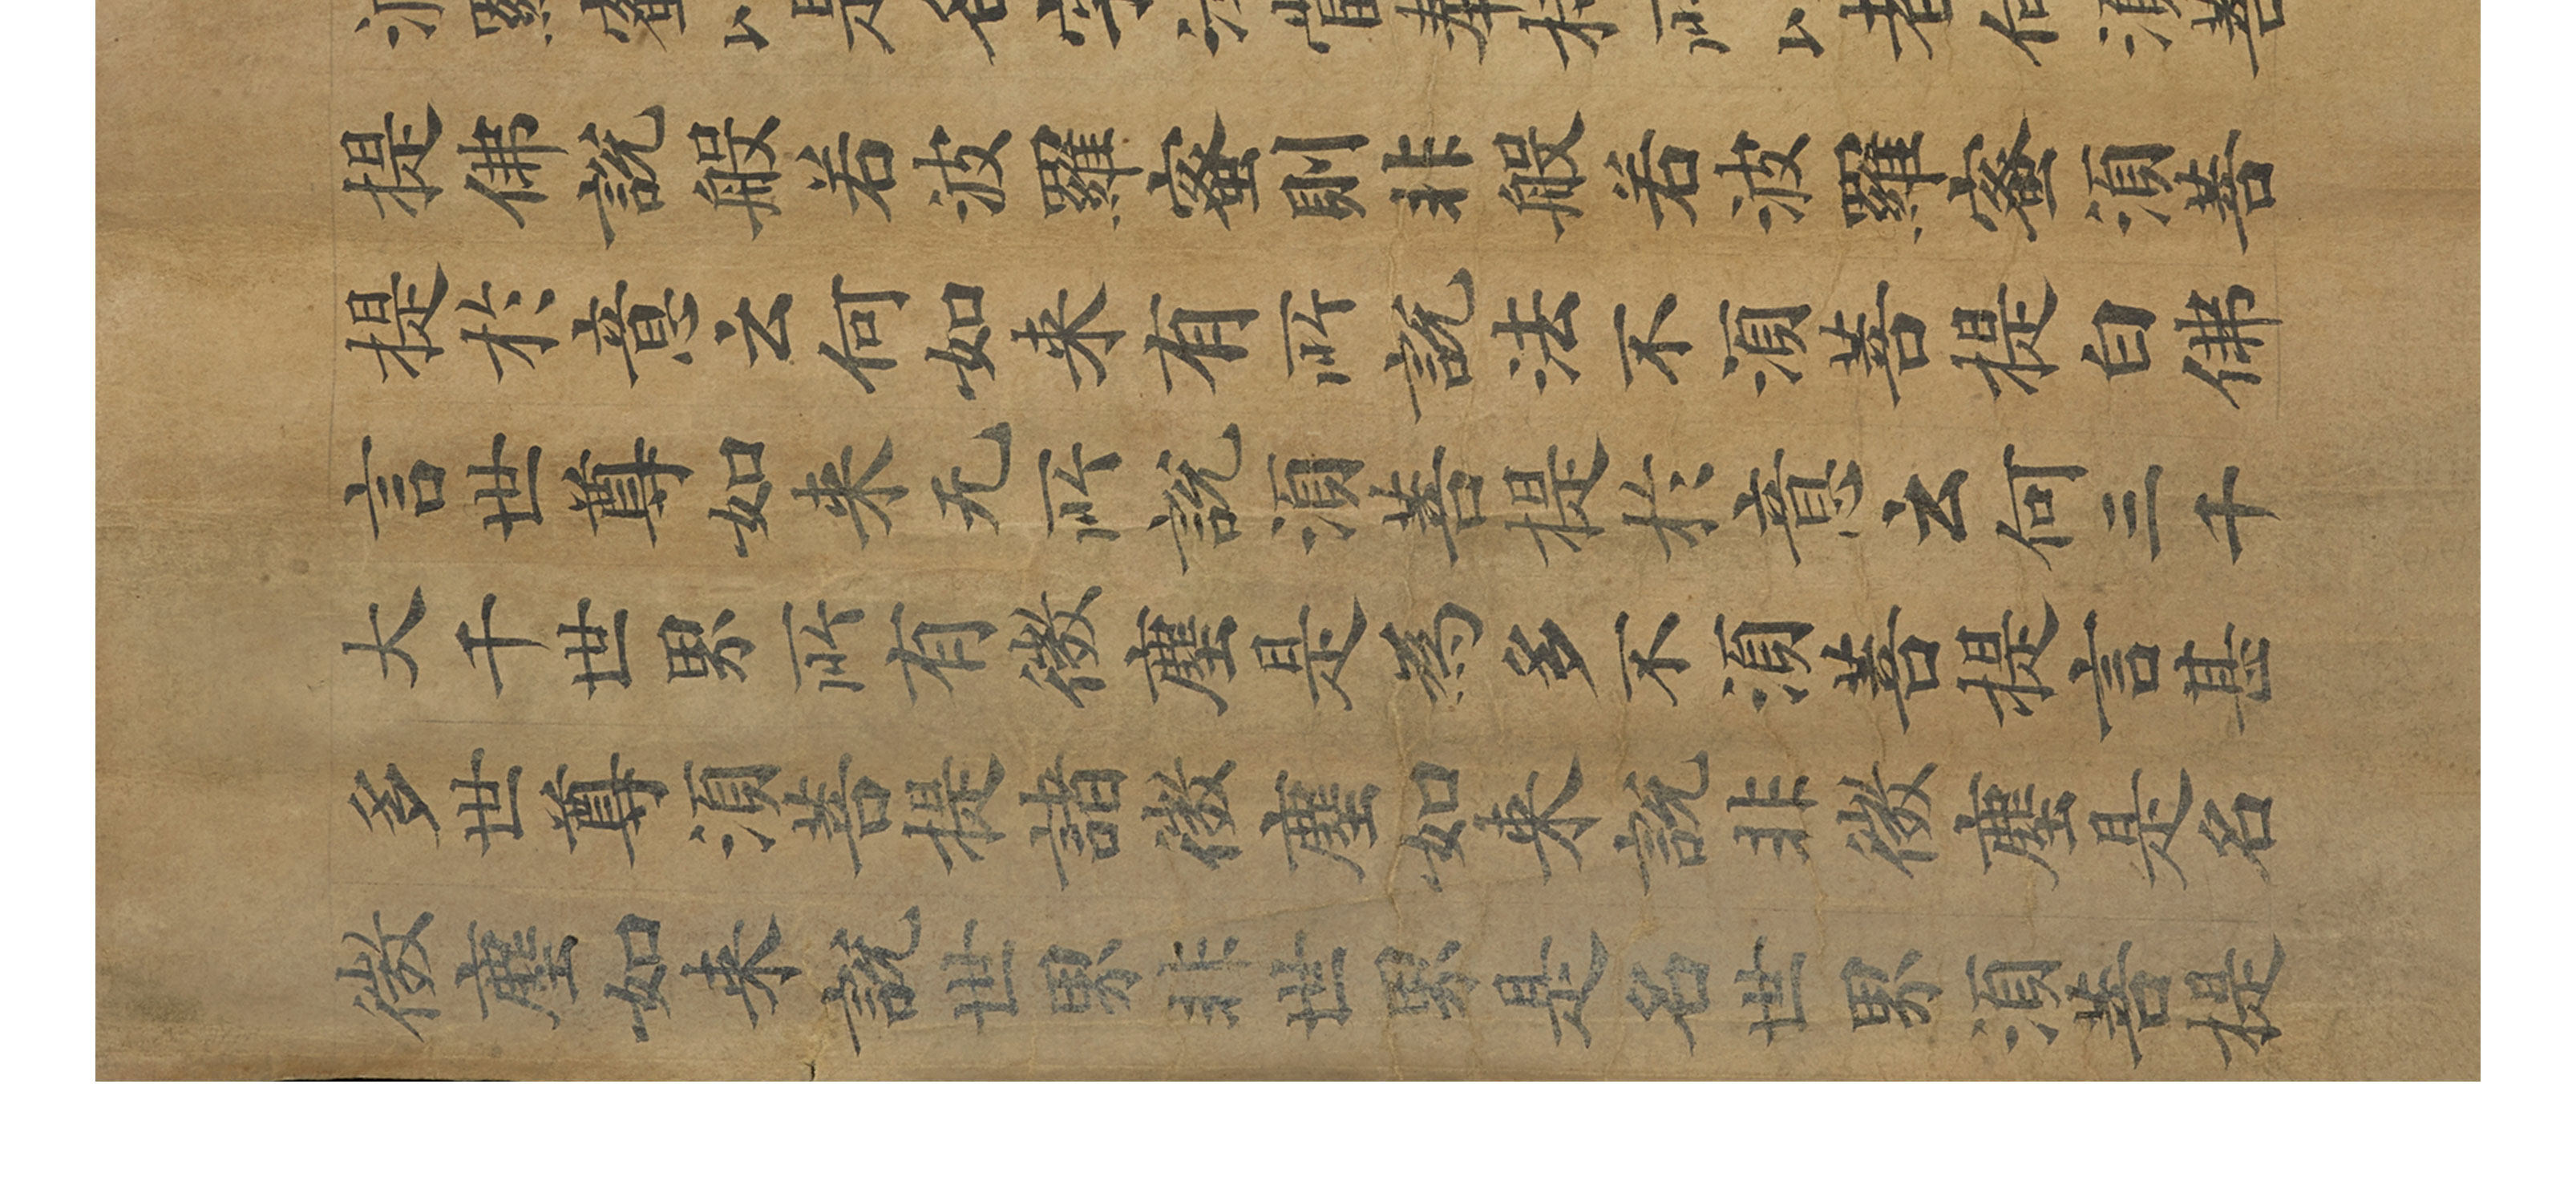 波羅蜜以是名字汝當奉持所以者何須菩
提佛說般若波羅蜜則非般若波羅蜜須菩
提於意云何如来有所說法不須菩提白佛
言世尊如来无所說須菩提於意云何三千
大千世界所有微塵是為多不須菩提言甚
多世尊須菩提諸微塵如来說非微塵是名
微塵如来說世界非世界是名世界須菩提